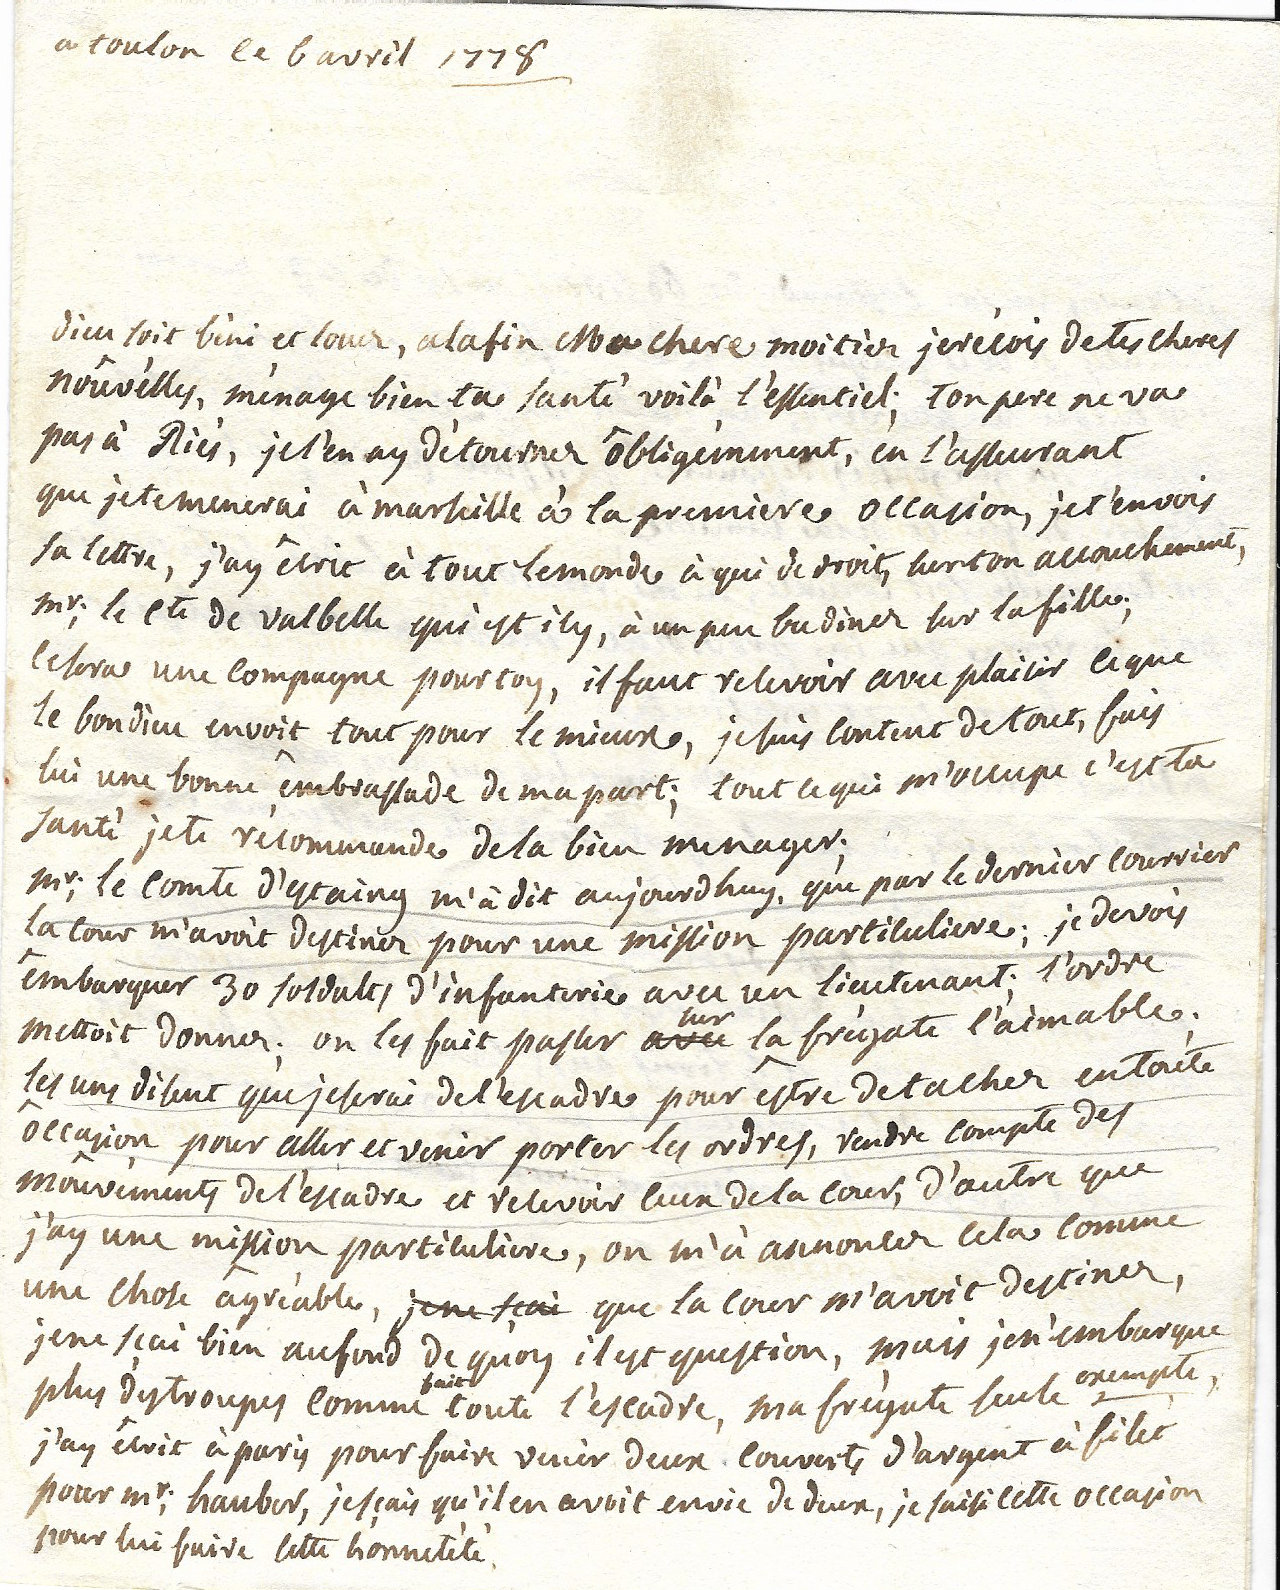 a toulon le 6 avril 1778
dieu soit béni et louer, alafin Ma chere moitier jerécois detes cheres
nôuvélles, ménage bien ta santé voilà l'essentiel; ton pere ne va
pas à Riés, jel'en ay détourner ôbligémment, én l'asseurant
que jetemenerai à marseille à la premiere occasion, jet'envois
sa lettre, j'ay êcrit à tout lemonde à qui de droit, sur ton accouchement,
mr; le cte de valbelle qui est icy, à un peu badiner sur la fille;
cesera une compagne pour toy, il faut recevoir avec plaisir ceque
le bondieu envoit tout pour le mieux, jesuis content de tout, fais
lui une bonne êmbrassade de ma part; tout cequi m'occupe c'est ta
santé jete récommande dela bien menager;
mr; le comte d'estaing m'à dit aujourdhuy, que par le dernier courrier
la cour m'avoit destiner pour une mission particuliere; je devois
êmbarquer 30 soldats d'infanterie avec un lieutenant; l'ordre
mettoit donner; on les fait passer avec sur la frégate l'aimable;
les uns disent que jeserai del'escadre pour êstre detacher en toute
ôccasion pour aller et venir porter les ordres, rendre compte des
môuvéments del'escadre et recevoir ceux dela cour, d'autre que
j'ay une mission particuliere, on m'à annoncer cela comme
une chose âgréable, jene sçai que la cour m'avoit destiner,
jene sçai bien aufond de quoy il est question, mais jen'embarque
plus des troupes comme fait toute l'escadre, ma frégate seule exempte,
j'ay êcrit à paris pour faire venir deux couverts d'argent à filet
pour mr; haubor, jesçais qu'il en avoit envie de deux, je saisi cette occasion
pour lui faire cette honnetété.